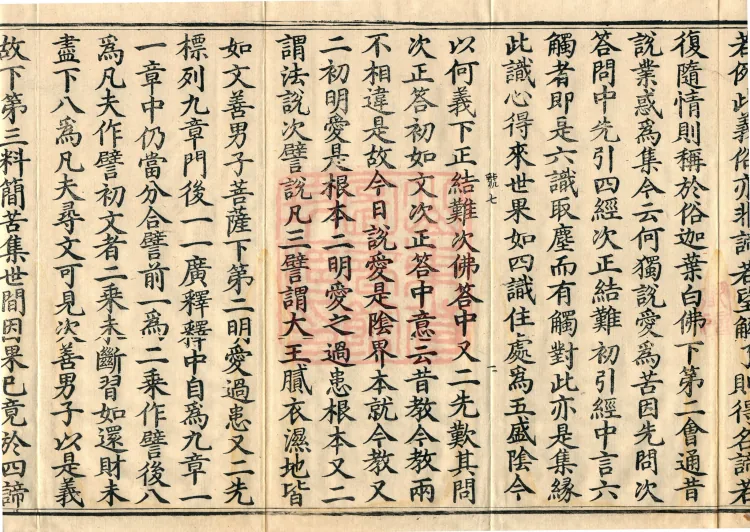 若例此義俗亦非諦若望解了則得名諦若
復隨情則稱於俗迦葉白佛下第二會通昔
說業惑為集今云何獨說愛為苦因先問次
答問中先引四經次正結難初引經中言六
觸者即是六識取塵而有觸對此亦是集緣
此識心得來世果如四識住處為五盛陰今
號七
二
以何義下正結難次佛答中又二先歎其問
次正答初如文次正答中意云昔教今教兩
不相違是故今日說愛是陰界本就今教又
二初明愛是根本二明愛之過患根本又二
謂法說次譬說凡三譬謂大王膩衣濕地皆
如文善男子菩薩下第二明愛過患又二先
標列九章門後一一廣釋釋中自為九章一
一章中仍當分合譬前一為二乘作譬後八
為凡夫作譬初文者二乘未斷習如還財未
盡下八為凡夫尋文可見次善男子以是義
故下第三料簡苦集世間因果已竟於四諦